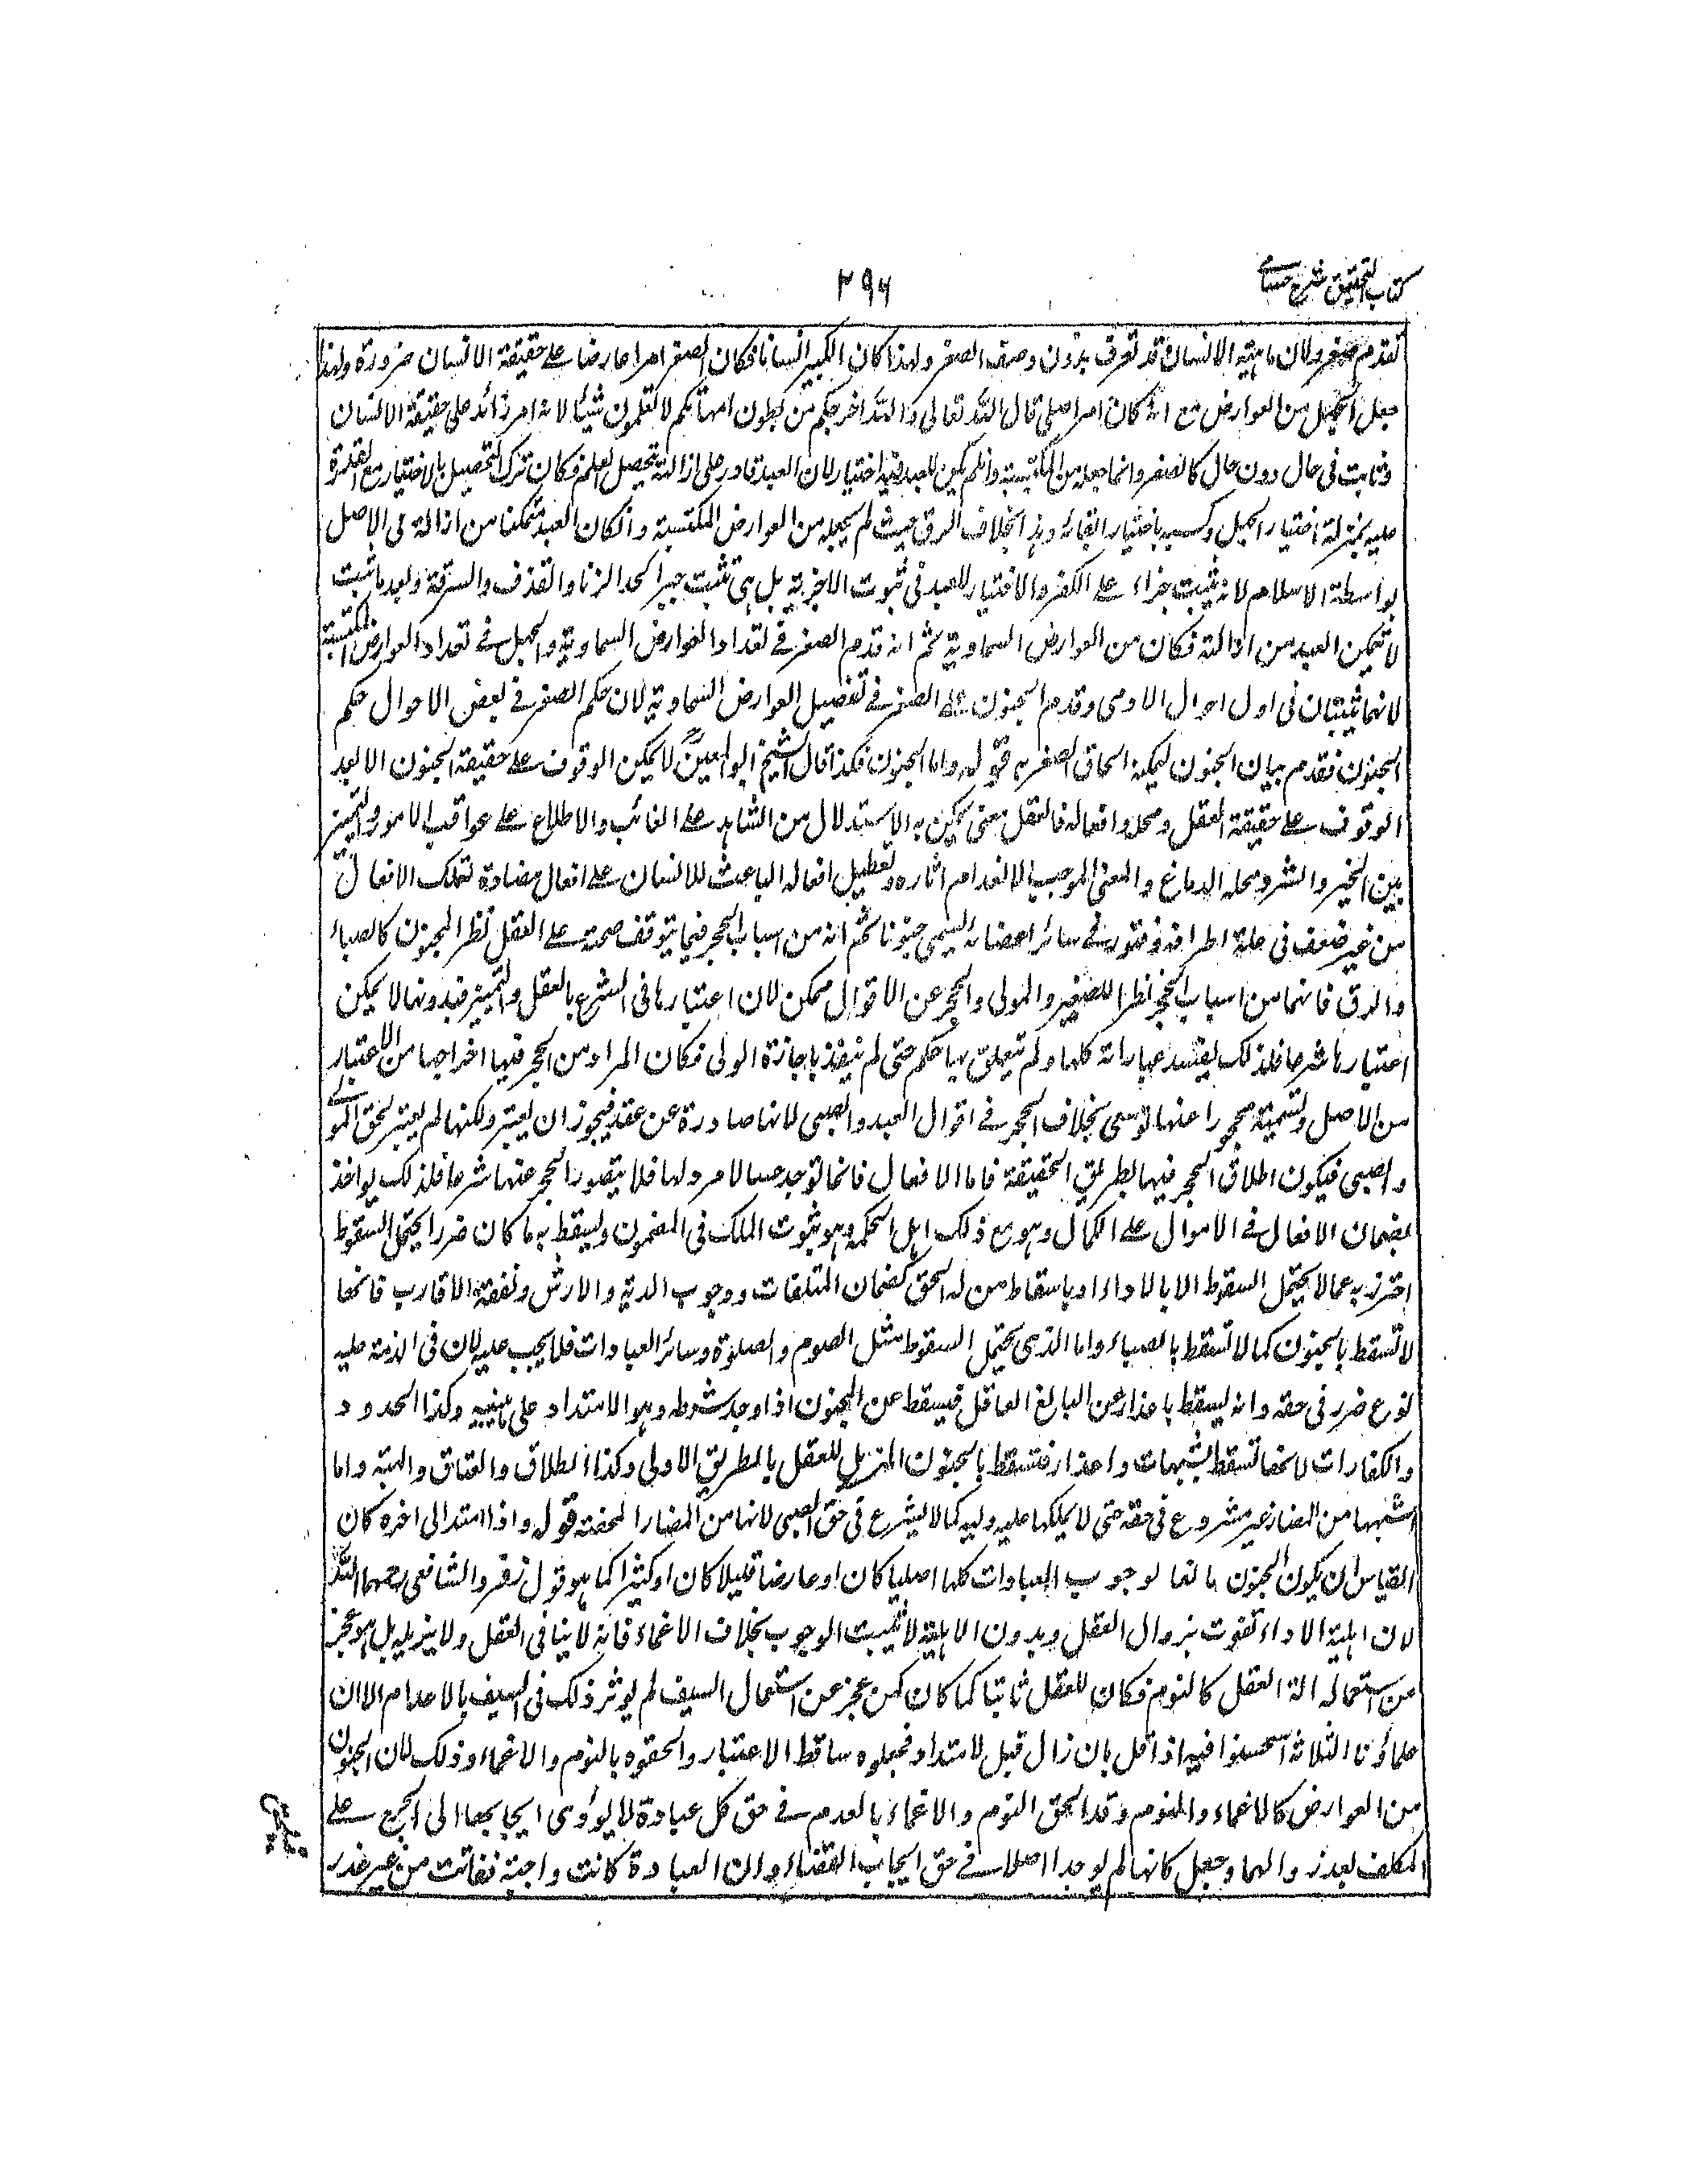 كتاب التحقيق شرح حسامي
٢٩٦
تقدم صغر ولان ماهية الانسان قد تعرف بدون وصف الصغر ولهذا كان الكبير انسانا فكان الصغر امرا عارضا على حقيقة الانسان ضرورة ولهذا
جعل الجهل من العوارض مع انه كان امر اصلي قال الله تعالى والله اخرجكم من بطون امهاتكم لا تعلمون شيئا لانه امر زائد على حقيقة الانسان
وثابت في حال دون حال كالصغر وانما جعله من المكتسبة وان لم يكن للعبد فيه اختيار لان العبد قادر على ازالته بتحصيل العلم فكان ترك التحصيل بالاختيار مع القدرة
عليه بمنزلة اختيار الجهل وكسبه باختيار ابقائه وهذا بخلاف الرق حيث لم يجعله من العوارض المكتسبة وان كان العبد متمكنا من ازالته في الاصل
بواسطة الاسلام لانه يثبت جزاء على الكفر والاختيار للعبد في ثبوت الاجزية بل هي تثبت جبرا كحد الزنا والقذف والسرقة وبعد ما ثبت
لا يتمكن العبد من ازالته فكان من العوارض السماوية ثم انه قدم الصغر في تعداد العوارض السماوية والجهل في تعداد العوارض المكتسبة
لانهما يثبتان في اول احوال الادمي وقدم الجنون على الصغر في تفصيل العوارض السماوية لان حكم الصغر في بعض الاحوال حكم
الجنون فقدم بيان الجنون ليمكنه الحاق الصغر به قوله واما الجنون فكذا قال الشيخ ابو المعين لا يمكن الوقوف على حقيقة الجنون الا بعد
الوقوف على حقيقة العقل ومحله وافعاله فالعقل معنى يمكن به الاستدلال من الشاهد على الغائب والاطلاع على عواقب الامور والتمييز
بين الخير والشر ومحله الدماغ والمعنى الموجب لانعدام اثاره وتعطيل افعاله الباعث للانسان على افعال مضادة لتلك الافعال
من غير ضعف في عامة اطرافه وفتور في سائر اعضائه يسمى جنونا ثم انه من اسباب الحجر فيما يتوقف صحته على العقل نظرا للمجنون كالصباء
والرق فانهما من اسباب الحجر نظرا للصغير والمولى والحجر عن الاقوال ممكن لان اعتبارها في الشرع بالعقل والتمييز فبدونهما لا يمكن
اعتبارها شرعا فلذلك يفسد عباراته كلها ولم يتعلق بها حكم حتى لم ينفذ باجازة الولي فكان المراد من الحجر فيها اخراجها من الاعتبار
من الاصل وتسميته محجورا عنها توسعي بخلاف الحجر في اقوال العبد والصبي لانها صادرة عن عقد فيجوز ان يعتبر ولكنها لم يعتبر لحق المولى
والصبي فيكون اطلاق الحجر فيها بطريق الحقيقة فاما الافعال فانما توجد حسا لا مرد لها فلا يتصور الحجر عنها شرعا فلذلك يواخذ
بضمان الافعال في الاموال على الكمال وهو مع ذلك اهل الحكمه وهو ثبوت الملك في المضمون ويسقط به ما كان ضررا يحتمل السقوط
احترز به عما لا يحتمل السقوط الا بالاداء او باسقاط من له الحق كضمان المتلفات ووجوب الدية والارش ونفقة الاقارب فانها
لا تسقط بالجنون كما لا تسقط بالصباء واما الذي يحتمل السقوط مثل الصوم والصلوة وسائر العبادات فلا يجب عليه لان في الزامه عليه
نوع ضرر في حقه وانه يسقط باعذار عن البالغ العاقل فيسقط عن المجنون اذا وجد شرطه وهو الامتداد على ما نبينه وكذا الحدود
والكفارات لانها تسقط بالشبهات واعذار فتسقط بالجنون المزيل للعقل بالطريق الاولى وكذا الطلاق والعتاق والهبة واما
اشبهها من المضار غير مشروع في حقه حتى لا يملكها عليه وليه كما لا يشرع في حق الصبي لانها من المضار المحضة قوله واذا امتد الى اخره كان
القياس ان يكون الجنون مانعا لوجوب العبادات كلها اصليا كان او عارضا قليلا كان او كثيرا كما هو قول زفر والشافعي رحمهما الله
لان اهلية الاداء تفوت بزوال العقل وبدون الاهلية لا يثبت الوجوب بخلاف الاغماء فانه لا ينافي العقل ولا يزيله بل هو عجز
عن استعماله الة العقل كالنوم فكان للعقل ثابتا كما كان كمن عجز عن استعمال السيف لم يوثر ذلك في السيف بالاعدام الا ان
علماؤنا الثلاثة استحسنوا فيه اذا قل بان زال قبل الامتداد فجعلوه ساقط الاعتبار والحقوه بالنوم والاغماء وذلك لان الجنون
من العوارض كالاغماء والنوم وقد الحق النوم والاغماء بالعدم في حق كل عبادة لا يؤدى ايجابها الى الحرج على
المكلف بعد زوالهما وجعل كانهما لم يوجدا اصلا في حق ايجاب القضاء وان العبادة كانت واجبة ففاتت من غير عذر